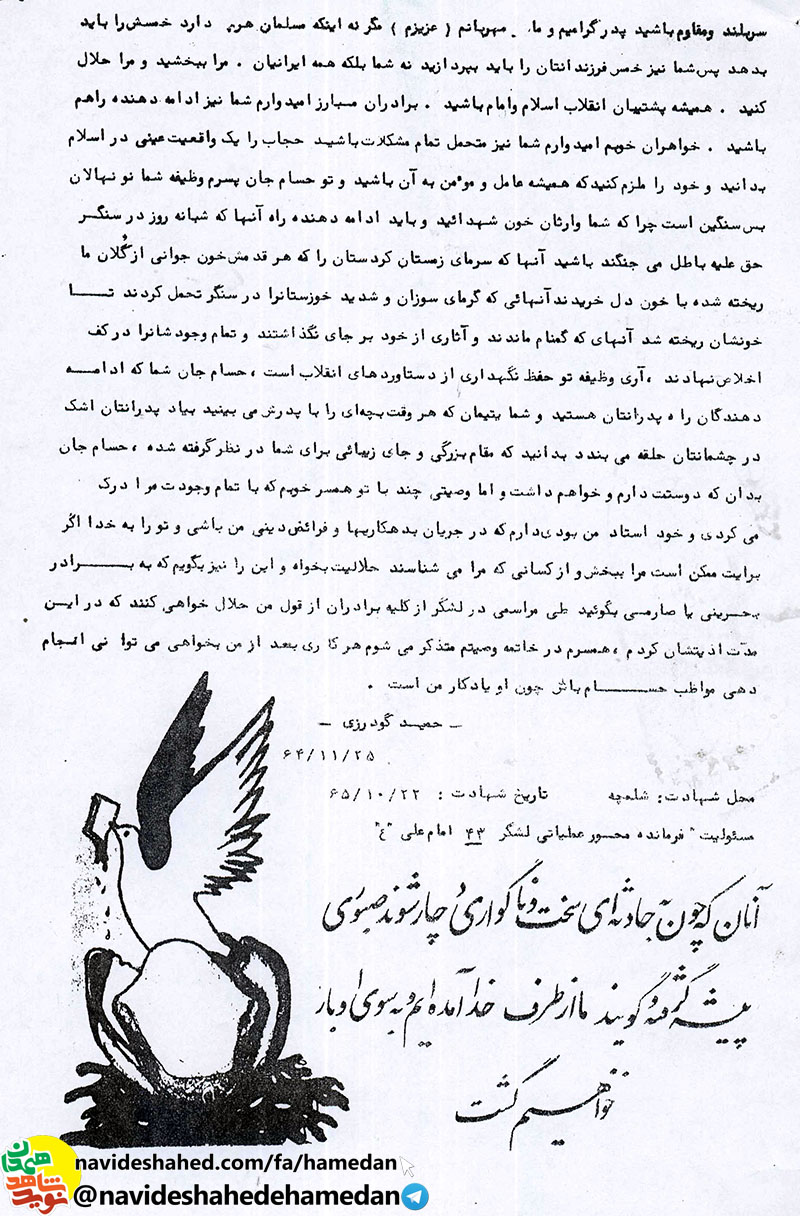 سربلند ومقاوم باشید پدر گرامیم و ما مهربانم ( عزیزم ) مگر نه اینکه مسلمان هرچه دارد خمسش را باید
بدهد پس شما نیز خمس فرزندانتان را باید بپردازید نه شما بلکه همه ایرانیان . مرا ببخشید و مرا حلال
کنید . همیشه پشتیبان انقلاب اسلام وامام باشید . برادران مبارز امیدوارم شما نیز ادامه دهنده راهم
باشید . خواهران خوبم امیدوارم شما نیز متحمل تمام مشکلات باشید حجاب را یک واقعیت عینی در اسلام
بدانید و خود را ملزم کنید که همیشه عامل و موٴمن به آن باشید و تو حسام جان پسرم وظیفه شما نو نهالان
بس سنگین است چرا که شما وارثان خون شهدائید و باید ادامه دهنده راه آنها که شبانه روز در سنگر
حق علیه باطل می جنگند باشید آنها که سرمای زمستان کردستان را که هر قدمش خون جوانی از گلان ما
ریخته شده با خون دل خریدند آنهائی که گرمای سوزان و شدید خوزستانرا در سنگر تحمل کردند تــا
خونشان ریخته شد آنهای که گمنام ماندند و آثاری از خود بر جای نگذاشتند و تمام وجودشانرا در کف
اخلاص نهادند ، آری وظیفه تو حفظ نگهداری از دستاوردهای انقلاب است ، حسام جان شما که ادامــه
دهندگان راه پدرانتان هستید و شما یتیمان که هر وقت بچه‌ای را با پدرش می بینید بیاد پدرانتان اشک
در چشمانتان حلقه می بندد بدانید که مقام بزرگی و جای زیبائی برای شما در نظر گرفته شده ، حسام جان
بدان که دوستت دارم و خواهم داشت و اما وصیتی چند با تو همسر خوبم که با تمام وجودت مرا درک
می کردی و خود استاد من بودی دارم که در جریان بدهکاریها و فرائض دینی من باشی و تو را به خدا اگر
برایت ممکن است مرا ببخش و از کسانی که مرا می شناسند حلالیت بخواه و این را نیز بگویم که به بــرادر
بحرینی یا صارمی بگوئید طی مراسمی در لشگر از کلیه برادران از قول من حلال خواهی کنند که در ایـن
مدت اذیتشان کردم ، همسرم در خاتمه وصیتم متذکر می شوم هر کاری بعد از من بخواهی می توانی انجام
دهی مواظب حســام باش چون او یادگار من است .
ــ حمید گودرزی ــ
۶۴/۱۱/۲۵
محل شهادت: شلمچه تاریخ شهادت : ۶۵/۱۰/۲۲
مسئولیت " فرمانده محور عملیاتی لشگر ۴۳ امام علی "ع"
آنان که چون به حادثه ای سخت و ناگواری دچار شوند صبوری
پیشه گرفته و گویند ما از طرف خدا آمده ایم و به سوی او باز
خواهیم گشت
نوید شاهد همدان
navideshahed.com/fa/hamedan
@navideshahedehamedan